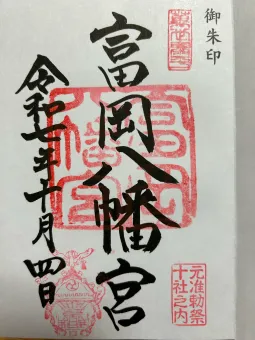 御朱印
富岡八幡宮
令和七年十月四日
元准勅祭
十社之内